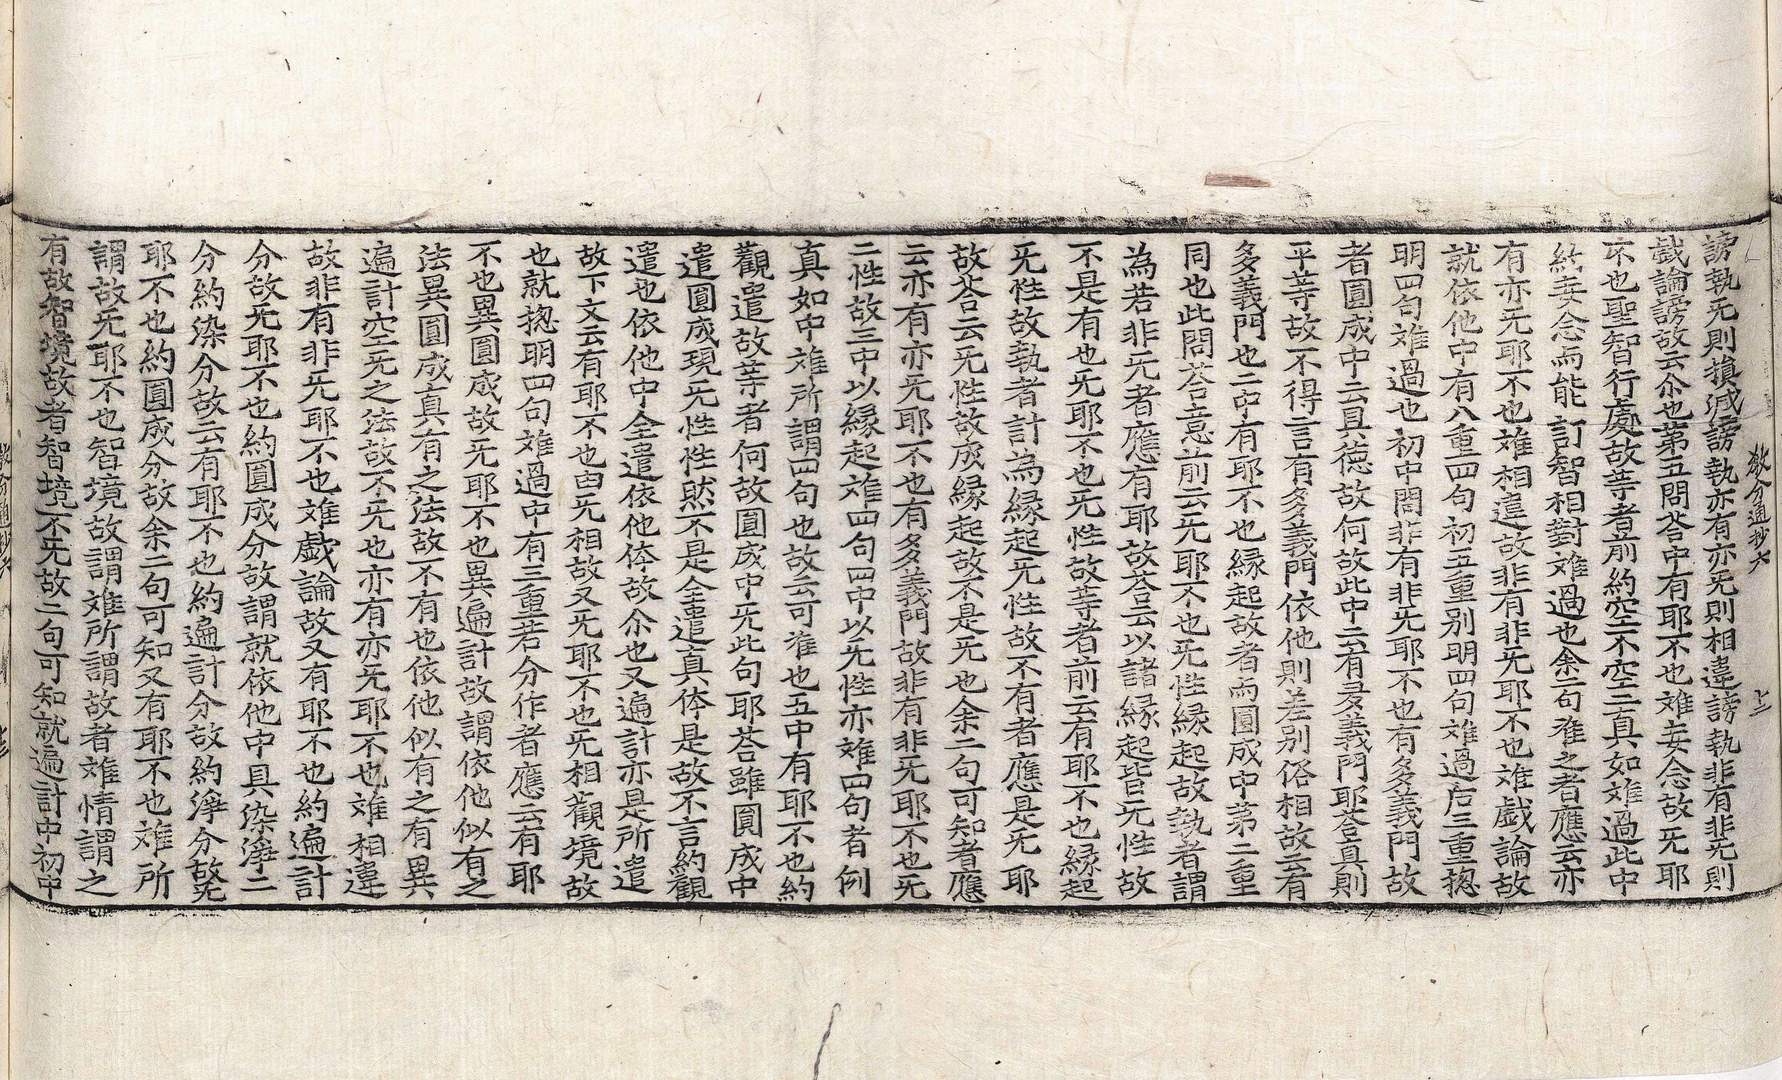 謗執旡則損減謗執亦有亦旡則相違謗執非有非旡則
戱論謗故云尒也第五問荅中有耶不也雉妄念故旡耶
不也聖智行處故等者前約空不空三真如雉過此中
約妄念而能訂智相對雉過也余二句准之者應云亦
有亦旡耶不也雉相違故非有非旡耶不也雉戱論故
就依他中有八重四句初五重別明四句雉過后三重揔
明四句雉過也初中問非有非旡耶不也有多義門故
者圓成中云具德故何故此中云有多義門耶荅真則
平等故不得言有多義門依他則差別俗相故云有
多義門也二中有耶不也縁起故者而圓成中第二重
同也此問荅意前云旡耶不也旡性縁起故執者謂
為若非旡者應有耶故荅云以諸縁起皆旡性故
不是有也旡耶不也旡性故等者前云有耶不也縁起
旡性故執者計為縁起旡性故不有者應是旡耶
故荅云旡性故成縁起故不是旡也余二句可知者應
云亦有亦旡耶不也有多義門故非有非旡耶不也旡
二性故三中以縁起雉四句四中以旡性亦雉四句者例
真如中雉所謂四句也故云可准也五中有耶不也約
觀遣故等者何故圓成中旡此句耶荅雖圓成中
遣圓成現旡性性然不是全遣真体是故不言約觀
遣也依他中全遣依他体故尒也又遍計亦是所遣
故下文云有耶不也由旡相故又旡耶不也旡相觀境故
也就揔明四句雉過中有三重若分作者應云有耶
不也異圓成故旡耶不也異遍計故謂依他似有之
法異圓成真有之法故不有也依他似有之有異
遍計空旡之法故不旡也亦有亦旡耶不也雉相違
故非有非旡耶不也雉戱論故又有耶不也約遍計
分故旡耶不也約圓成分故謂就依他中具染淨二
分約染分故云有耶不也約遍計分故約淨分故旡
耶不也約圓成分故余二句可知又有耶不也雉所
謂故旡耶不也智境故謂雉所謂故者雉情謂之
有故智境故者智境不旡故二句可知就遍計中初中